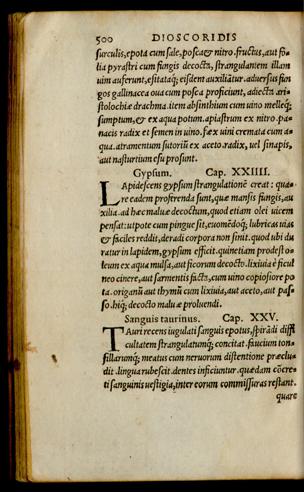 500 DIOSCORIDIS
surculis, epota cum sale, posca & nitro. fructus, aut fo-
lia pyrastri cum fungis decocta, strangulantem illam
uim auferunt, esitataq; eisdem auxiliātur. aduersus fun
gos gallinacea oua cum posca proficiunt, adiecta ari-
stolochiæ drachma. item absinthium cum uino melleq;
sumptum, & ex aqua potum. apiastrum ex nitro. pa-
nacis radix et semen in uino. fæx uini cremata cum a-
qua. atramentum sutoriū ex aceto. radix, uel sinapis,
aut nasturtium esu prosunt.
Gypsum. Cap. XXIIII.
LApidescens gypsum strangulationē creat: qua-
re eadem proferenda sunt, quæ mansis fungis, au
xilia. ad hæc maluæ decoctum, quod etiam olei uicem
pensat: utpote cum pingue sit, euomēdoq; lubricas uias
& faciles reddit, deradi corpora non sinit. quod ubi du
ratur in lapidem, gypsum efficit. quinetiam prodest o-
leum ex aqua mulsa, aut ficorum decocto. lixiuia è ficul
neo cinere, aut sarmentis facta, cum uino copiosiore po
ta. origanū aut thymū cum lixiuia, aut aceto, aut pas-
so. hiq; decocto maluæ proluendi.
Sanguis taurinus. Cap. XXV.
TAuri recens iugulati sanguis epotus, spirādi diffi
cultatem strangulatumq; concitat. faucium ton-
sillarumq; meatus cum neruorum distentione præclu-
dit. lingua rubescit. dentes inficiuntur. quædam cōcre-
ti sanguinis uestigia, inter eorum commissuras restant.
quare